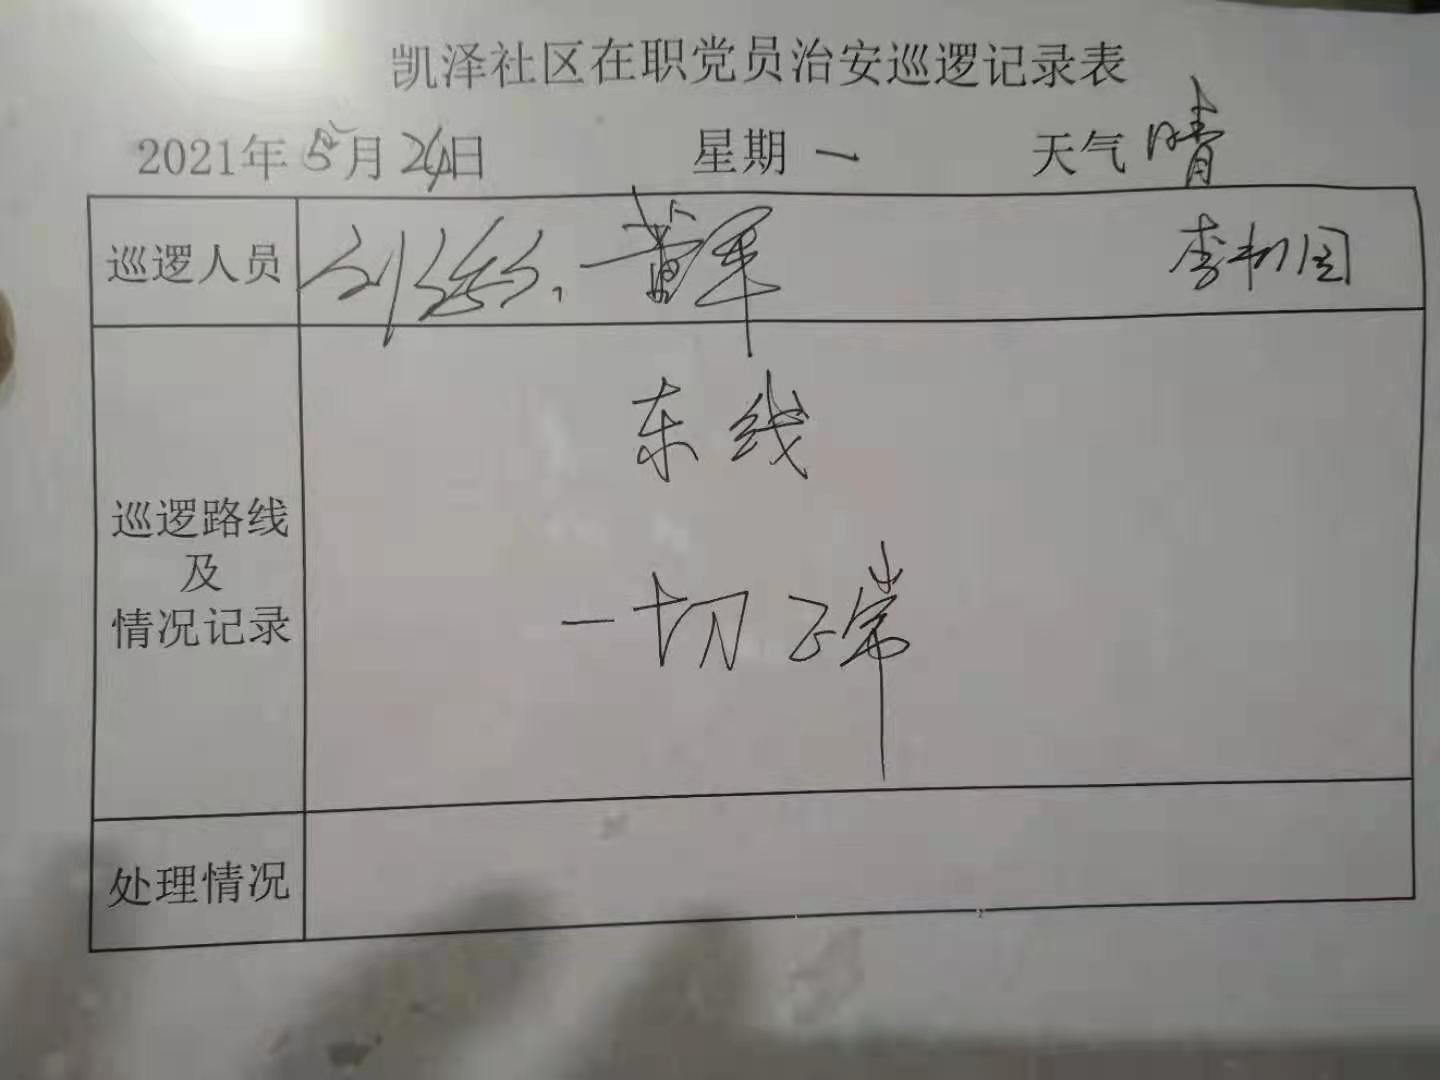 凯泽社区在职党员治安巡逻记录表
2021年5月24日 星期一 天气晴
巡逻人员
东线
巡逻路线
及
情况记录
一切正常
处理情况